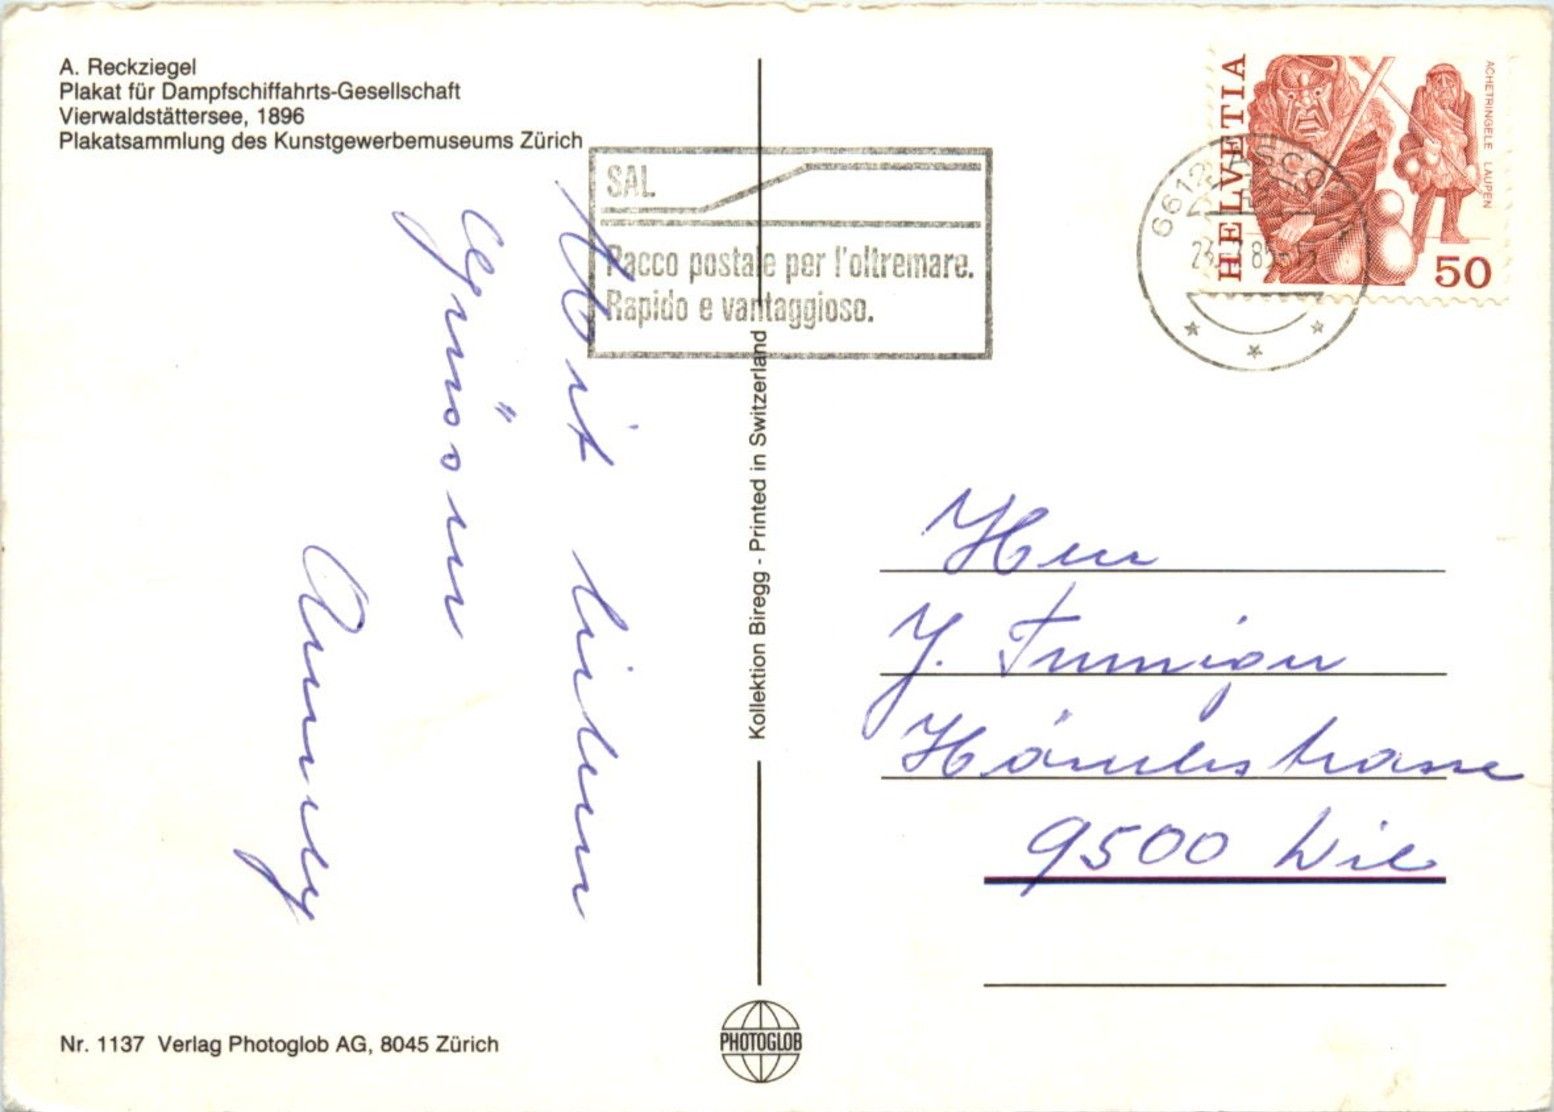 A. Reckziegel
Plakat für Dampfschiffahrts-Gesellschaft
Vierwaldstättersee, 1896
Plakatsammlung des Kunstgewerbemuseums Zürich
SAL
Pacco postale per l'oltremare.
Rapido e vantaggioso.
HELVETIA
ACHETRINGELE LAUPEN
50
6612 ASCO
Mit lieben
Grüssen
Kollektion Biregg - Printed in Switzerland
Herr
J.
9500 Wil
Nr. 1137 Verlag Photoglob AG, 8045 Zürich
PHOTOGLOB